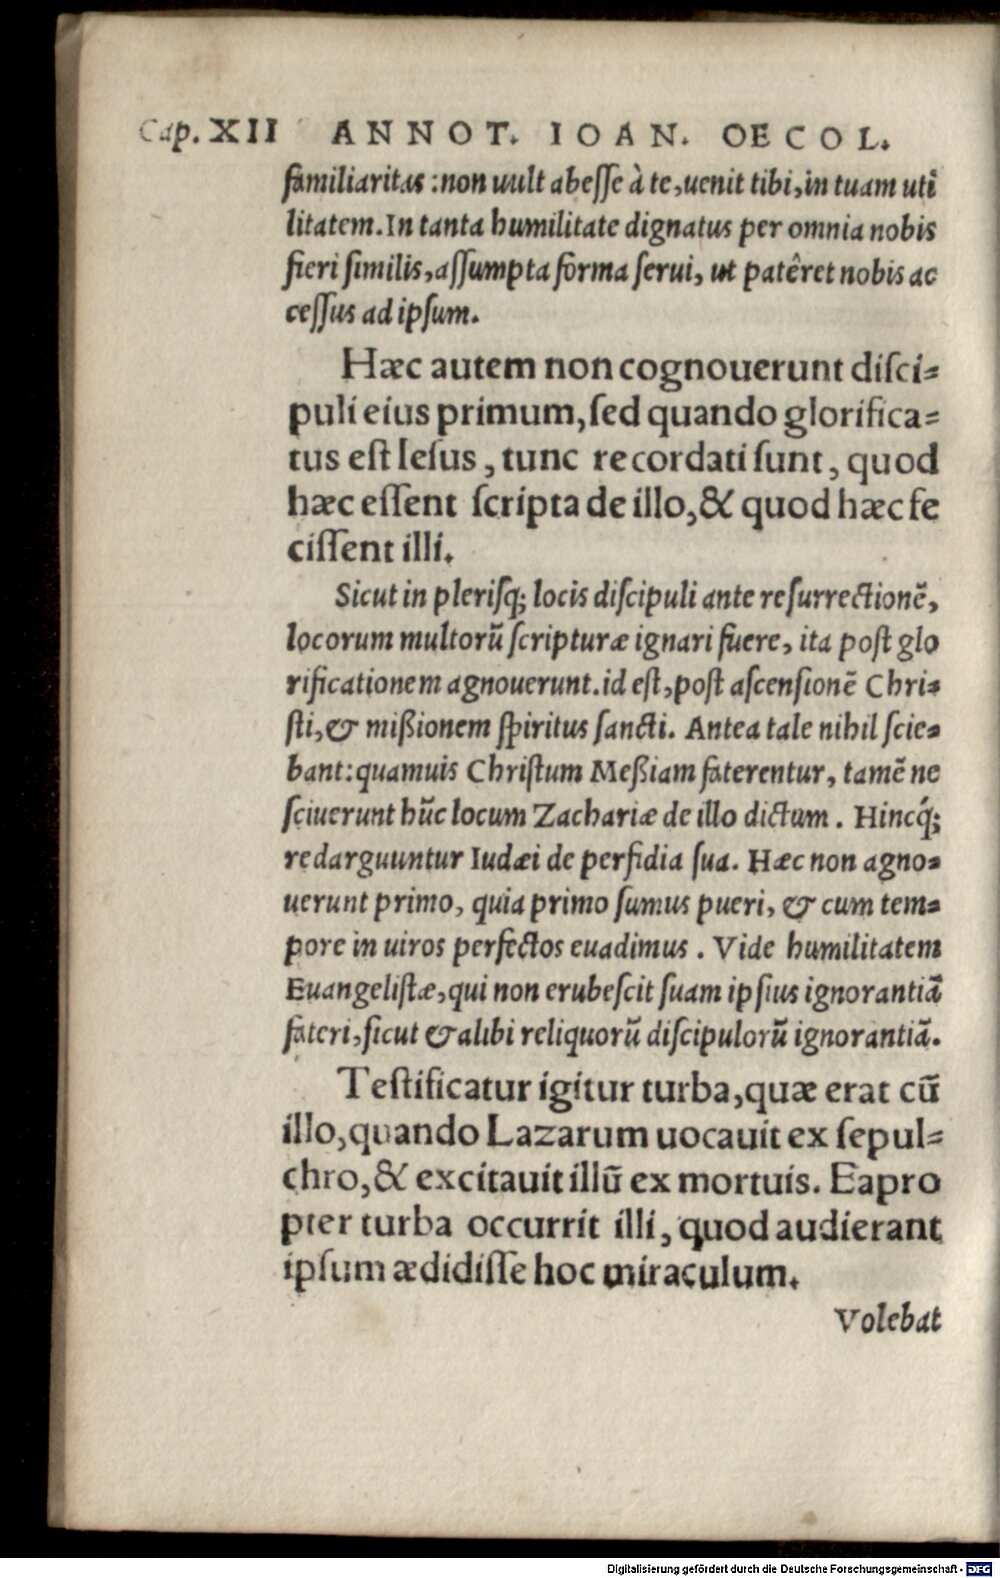 Cap. XII ANNOT. IOAN. OECOL.
familiaritas: non uult abeſſe à te, uenit tibi, in tuam uti
litatem. In tanta humilitate dignatus per omnia nobis
fieri ſimilis, aſſumpta forma ſerui, ut patêret nobis ac
ceſſus ad ipſum.
Hæc autem non cognouerunt diſci⸗
puli eius primum, ſed quando glorifica⸗
tus eſt Ieſus, tunc recordati ſunt, quod
hæc eſſent ſcripta de illo, & quod hæc fe
ciſſent illi.
Sicut in pleriſq; locis diſcipuli ante reſurrectionẽ,
locorum multorũ ſcripturæ ignari fuere, ita poſt glo
rificationem agnouerunt. id eſt, poſt aſcenſionẽ Chri⸗
ſti, & mißionem ſpiritus ſancti. Antea tale nihil ſcie⸗
bant: quamuis Chriſtum Meßiam faterentur, tamẽ ne
ſciuerunt hũc locum Zachariæ de illo dictum. Hincq́;
redarguuntur Iudæi de perfidia ſua. Hæc non agno⸗
uerunt primo, quia primo ſumus pueri, & cum tem⸗
pore in uiros perfectos euadimus. Vide humilitatem
Euangeliſtæ, qui non erubeſcit ſuam ipſius ignorantiã
fateri, ſicut & alibi reliquorũ diſcipulorũ ignorantiã.
Teſtificatur igitur turba, quæ erat cũ
illo, quando Lazarum uocauit ex ſepul⸗
chro, & excitauit illũ ex mortuis. Eapro
pter turba occurrit illi, quod audierant
ipſum ædidiſſe hoc miraculum.
Volebat
Digitalisierung gefördert durch die Deutsche Forschungsgemeinschaft - DFG